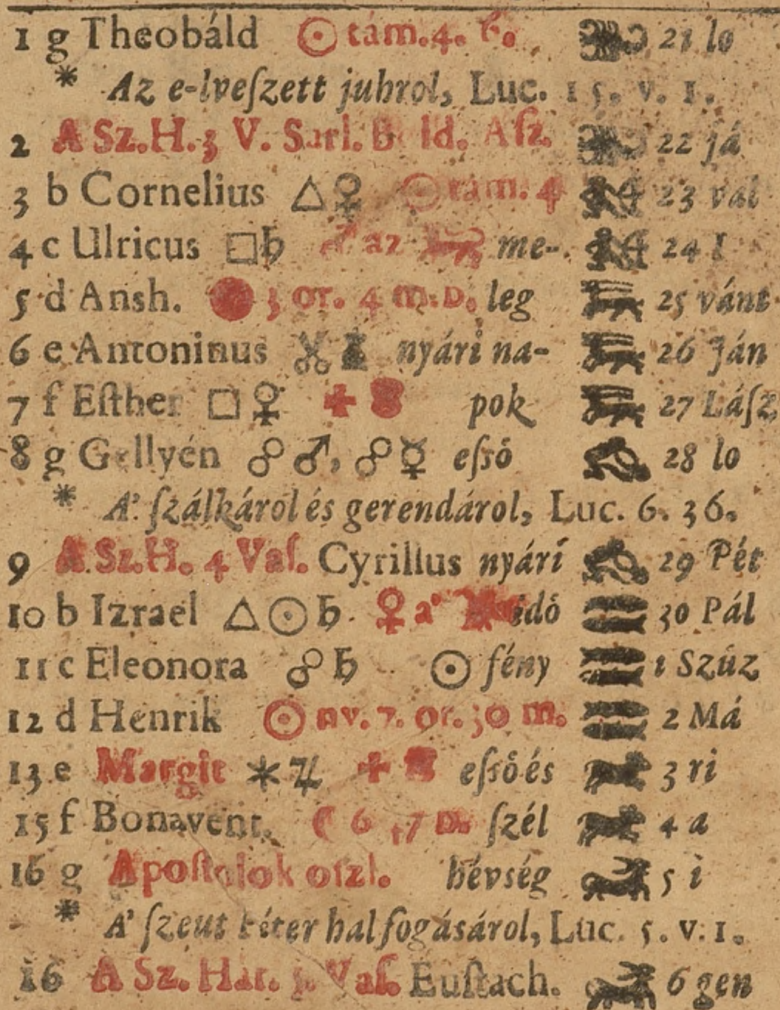 1 g Theobáld ☉ tám. 4. 6. 21 lo
* Az e-lveſzett juhrol, Luc. 15. v. 1.
2 A Sz. H. 3 V. Sarl. B ld. Aſz. 22 já
3 b Cornelius △♀ ☉ tám. 4 23 vál
4 c Ulricus □♄ ♂ az me- 24 I
5 d Ansh. 3 or. 4 m. D. leg 25 vánt
6 e Antoninus nyári na- 26 Ján
7 f Eſther □♀ pok 27 Láſz
8 g Gellyén ☍♂, ☍☿ eſsö 28 lo
* A' ſzálkárol és gerendárol, Luc. 6. 36.
9 A Sz. H. 4 Vaſ. Cyrillus nyári 29 Pét
10 b Izrael △☉♄. ♀ a' idö 30 Pál
11 c Eleonora ☍♄ ☉ fény 1 Szúz
12 d Henrik ☉ nv. 7. or. 30 m. 2 Má
13 e Margit ✶♃ eſsö és 3 ri
15 f Bonavent. ☾ 6 ,7 D. ſzél 4 a
16 g Apoſtolok oſzl. hévség 5 i
* A' ſzent Péter halfogásárol, Luc. 5. v. 1.
16 A Sz. Hár. 5. Vaſ. Euſtach. 6 gen